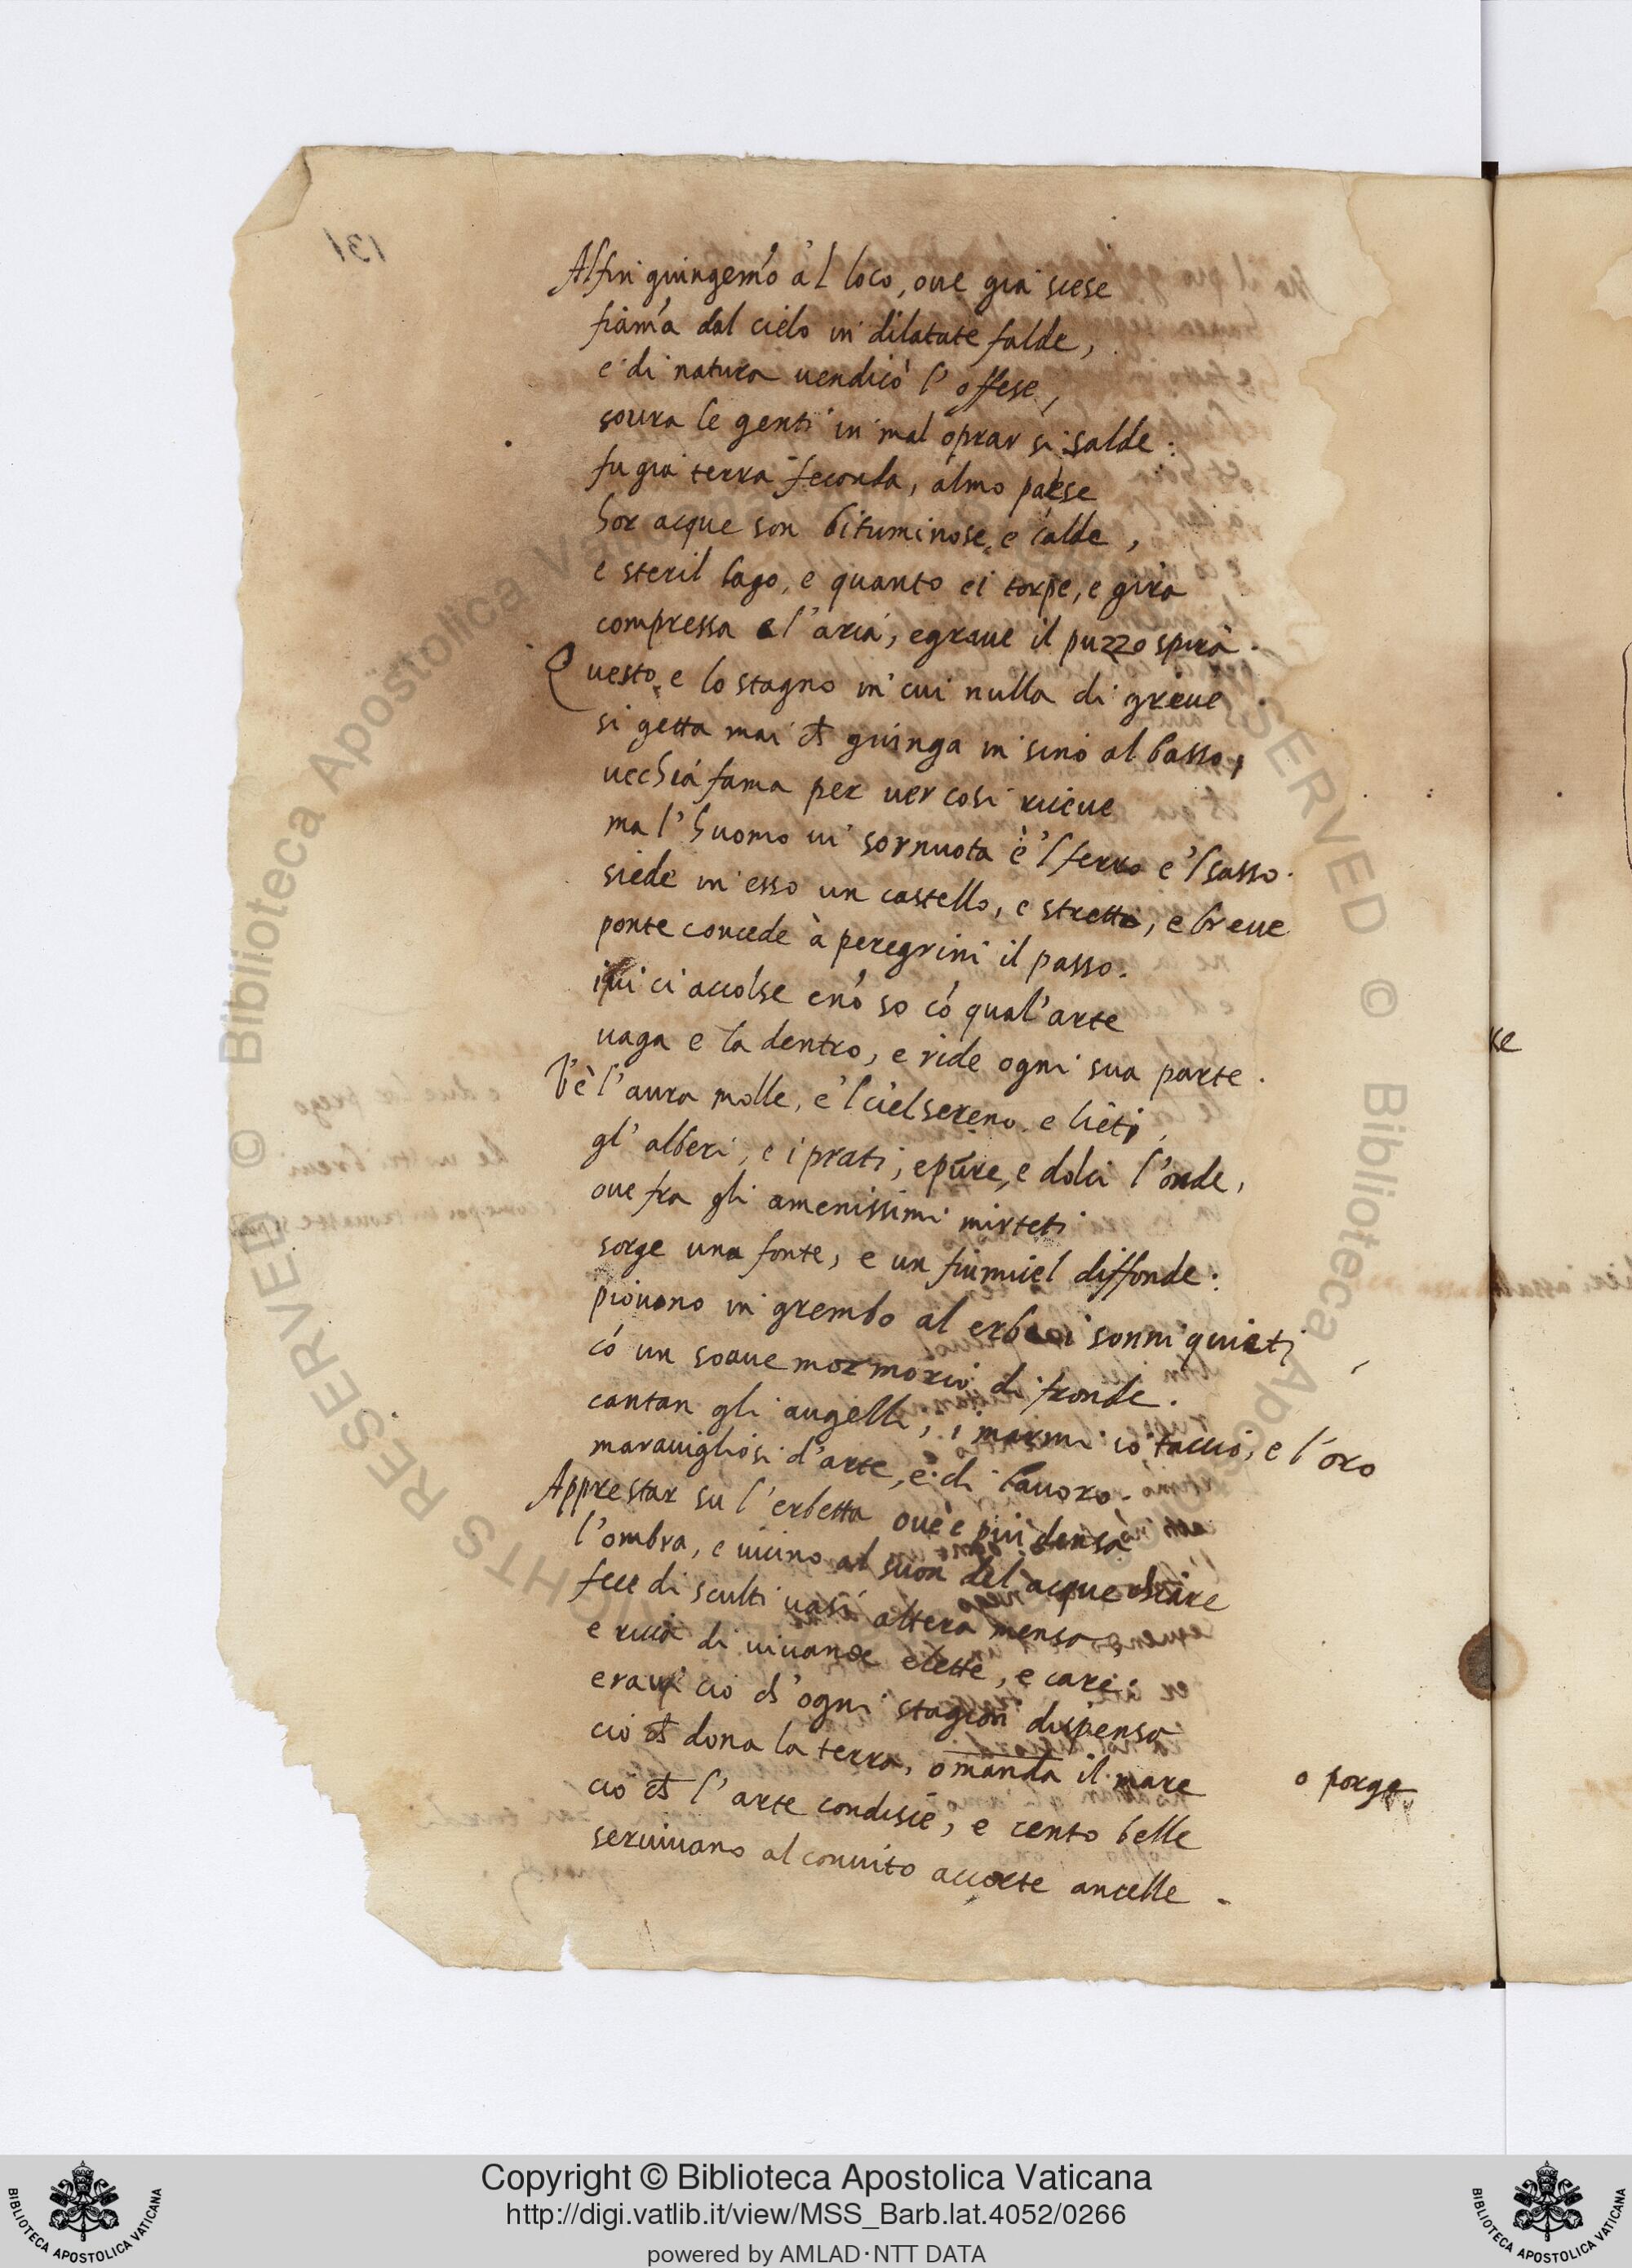 Alfin giungemo al loco, oue gia scese
fiama dal cielo in dilatate falde,
e di natura uendicò l'offese,
soura le genti in mal oprar si salde:
fu gia terra feconda, almo paese
hor acque son bituminose, e calde,
e steril lago, e quanto ei torpe, e gira
compressa e l'aria, e graue il puzzo spira.
Questo, e lo stagno in cui nulla di greue
si getta mai ch giunga in sino al basso,
uechia fama per uer cosi riceue
ma l'huomo ui sornuota è 'l ferro e 'l sasso.
siede in esso un castello, e stretto, e breue
ponte concede à peregrini il passo.
iui ci accolse e nó so có qual'arte
uaga e la dentro, e ride ogni sua parte.
V'è l'aura molle, e 'l ciel sereno. e lieti
gl'alberi, e i prati, e pure, e dolci l'onde,
oue fra gli amenissimi mirteti
sorge una fonte, e un fiumicel diffonde:
piouono in grembo al erbe i sonni quieti
có un soaue mormorio di fronde.
cantan gli augelli, i marmi io taccio, e l'oro
marauigliosi d'arte, e di lauoro.
Apprestar su l'erbetta oue e piu densa
l'ombra, e uicino al suon del acque chiare
fece di sculti uasi altera mensa,
e ricca di uiuande elette, e care.
eraui ciò ch'ogni stagion dispensa
ciò ch dona la terra, o manda il mare
o porge
ciò ch l'arte condisce, e cento belle
seruiuano al conuito accorte ancelle.
131
Copyright © Biblioteca Apostolica Vaticana
http://digi.vatlib.it/view/MSS_Barb.lat.4052/0266
powered by AMLAD·NTT DATA
BIBLIOTECA APOSTOLICA VATICANA
BIBLIOTECA APOSTOLICA VATICANA